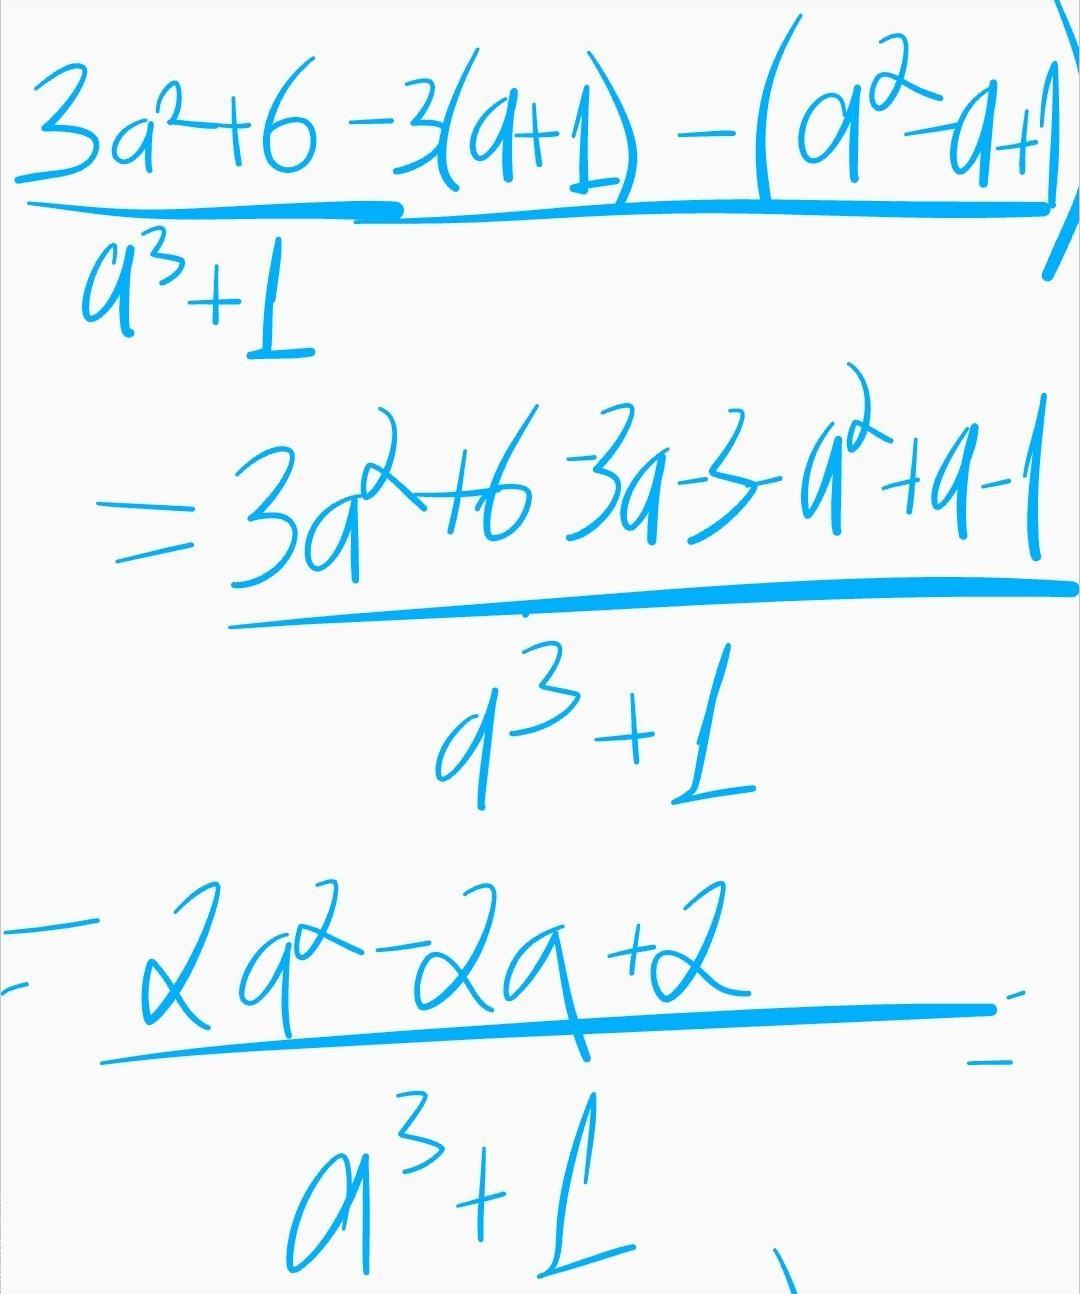 3a²+6-3(a+1)-(a²-a+1)
a³+1
=3a²+6-3a-3-a²+a-1
a³+1
=2a²-2a+2=
a³+1